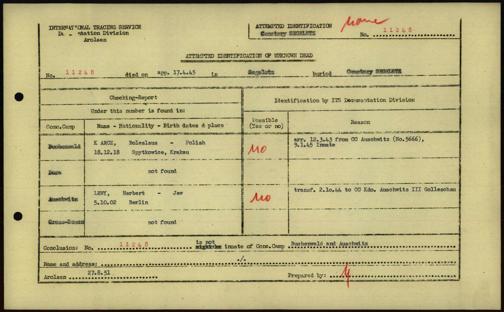 INTERNATIONAL TRACING SERVICE
Documentation Division
Arolsen
ATTEMPTED IDENTIFICATION
Cemetery SEGELETZ
none
No. 11248
ATTEMPTED IDENTIFICATION OF UNKNOWN DEAD
No. 11248 died on app. 17.4.45 in Segeletz buried Cemetery SEGELETZ
Checking-Report
Under this number is found in:
Identification by ITS Documentation Division
Conc.Camp
Name - Nationality - Birth dates & place
Possible
(Yes or no)
Reason
Buchenwald
K ARCZ, Boleslaus - Polish
18.12.18 Spytkowice, Krakau
no
arr. 12.3.45 from CC Auschwitz (No.5666),
9.1.45 Inmate
Dora
not found
Auschwitz
LEWY, Herbert - Jew
5.10.02 Berlin
no
transf. 2.10.44 to CC Kdo. Auschwitz III Golleschau
Gross-Rosen
not found
Conclusion: No. 11248 is not inmate of Conc.Camp Buchenwald and Auschwitz
Name and address: ./.
Arolsen 27.8.51
Prepared by: